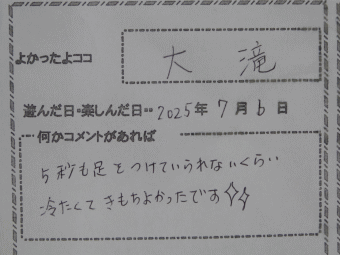 よかったよココ 大滝
遊んだ日・楽しんだ日・・ 2025年 7月 6日
何かコメントがあれば
5秒も足をつけていられないくらい
冷たくてきもちよかったです✨